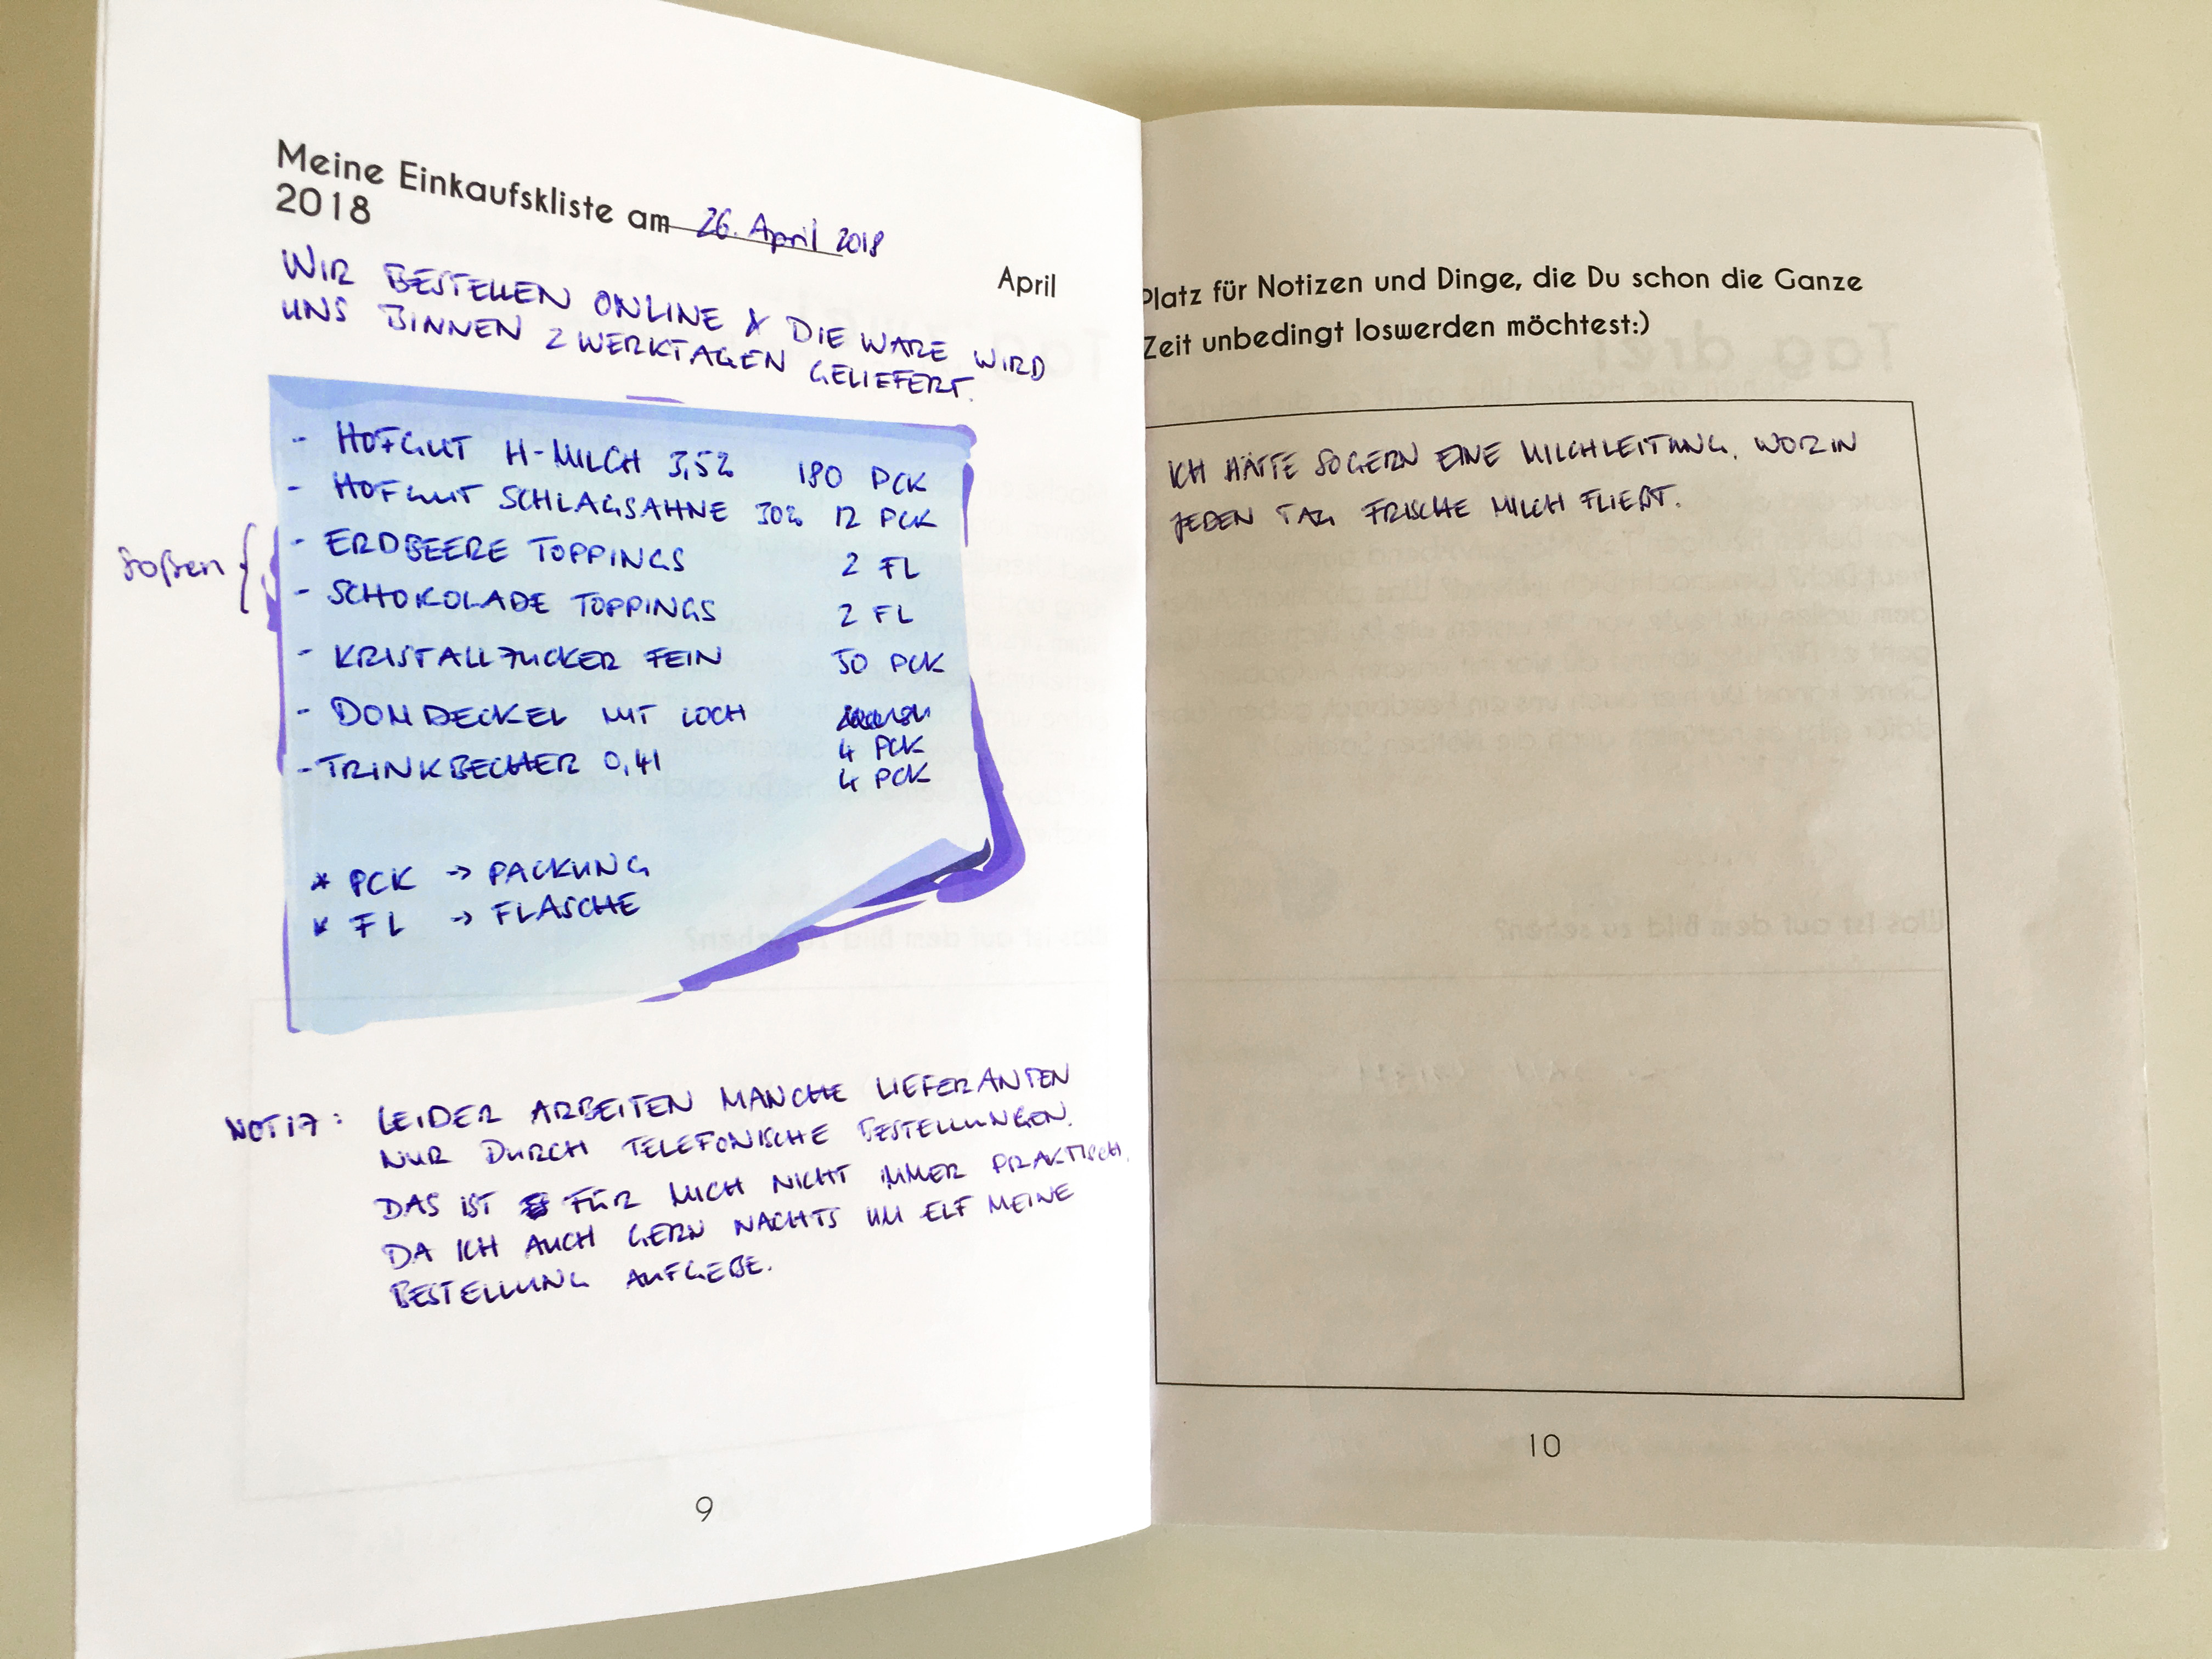 Meine Einkaufskliste am 26. April 2018
2018
April
WIR BESTELLEN ONLINE & DIE WARE WIRD
UNS BINNEN 2 WERKTAGEN GELIEFERT.
- HOFGUT H-MILCH 3,5% 180 PCK
- HOFGUT SCHLAGSAHNE 30% 12 PCK
Soßen {
- ERDBEERE TOPPINGS 2 FL
- SCHOKOLADE TOPPINGS 2 FL
- KRISTALLZUCKER FEIN 50 PCK
- DOM DECKEL MIT LOCH
4 PCK
- TRINKBECHER 0,4l 4 PCK
* PCK -> PACKUNG
* FL -> FLASCHE
NOTIZ: LEIDER ARBEITEN MANCHE LIEFERANTEN
NUR DURCH TELEFONISCHE BESTELLUNGEN.
DAS IST FÜR MICH NICHT IMMER PRAKTISCH,
DA ICH AUCH GERN NACHTS UM ELF MEINE
BESTELLUNG AUFGEBE.
9
Platz für Notizen und Dinge, die Du schon die Ganze
Zeit unbedingt loswerden möchtest:)
ICH HÄTTE SO GERN EINE MILCHLEITUNG, WORIN
JEDEN TAG FRISCHE MILCH FLIEßT.
10